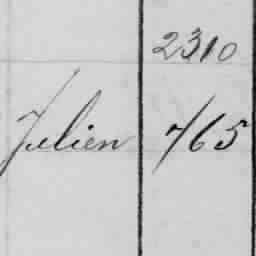 2310
Julien 765